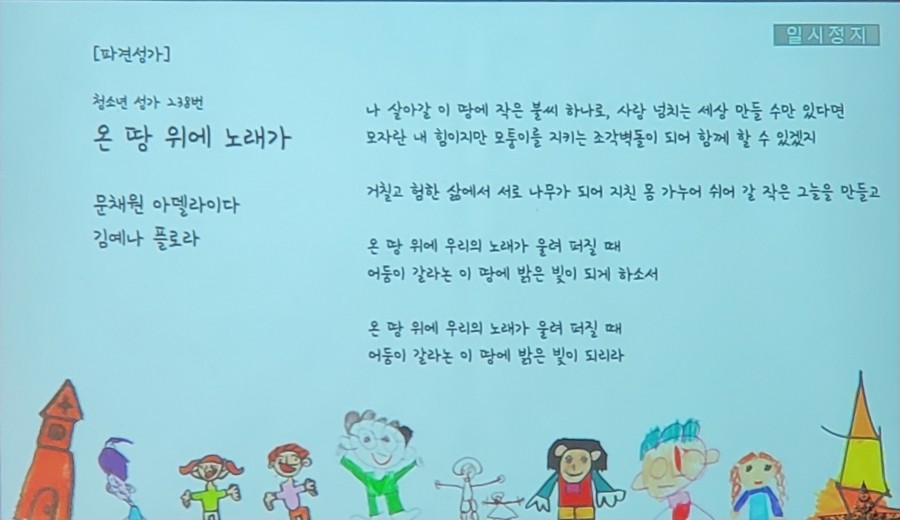 일시정지
[파견성가]
청소년 성가 238번
온 땅 위에 노래가
문채원 아델라이다
김예나 플로라
나 살아갈 이 땅에 작은 불씨 하나로, 사람 넘치는 세상 만들 수만 있다면
모자란 내 힘이지만 모퉁이를 지키는 조각벽돌이 되어 함께 할 수 있겠지
거칠고 험한 삶에서 서로 나무가 되어 지친 몸 가누어 쉬어 갈 작은 그늘을 만들고
온 땅 위에 우리의 노래가 울려 퍼질 때
어둠이 갈라논 이 땅에 밝은 빛이 되게 하소서
온 땅 위에 우리의 노래가 울려 퍼질 때
어둠이 갈라논 이 땅에 밝은 빛이 되리라